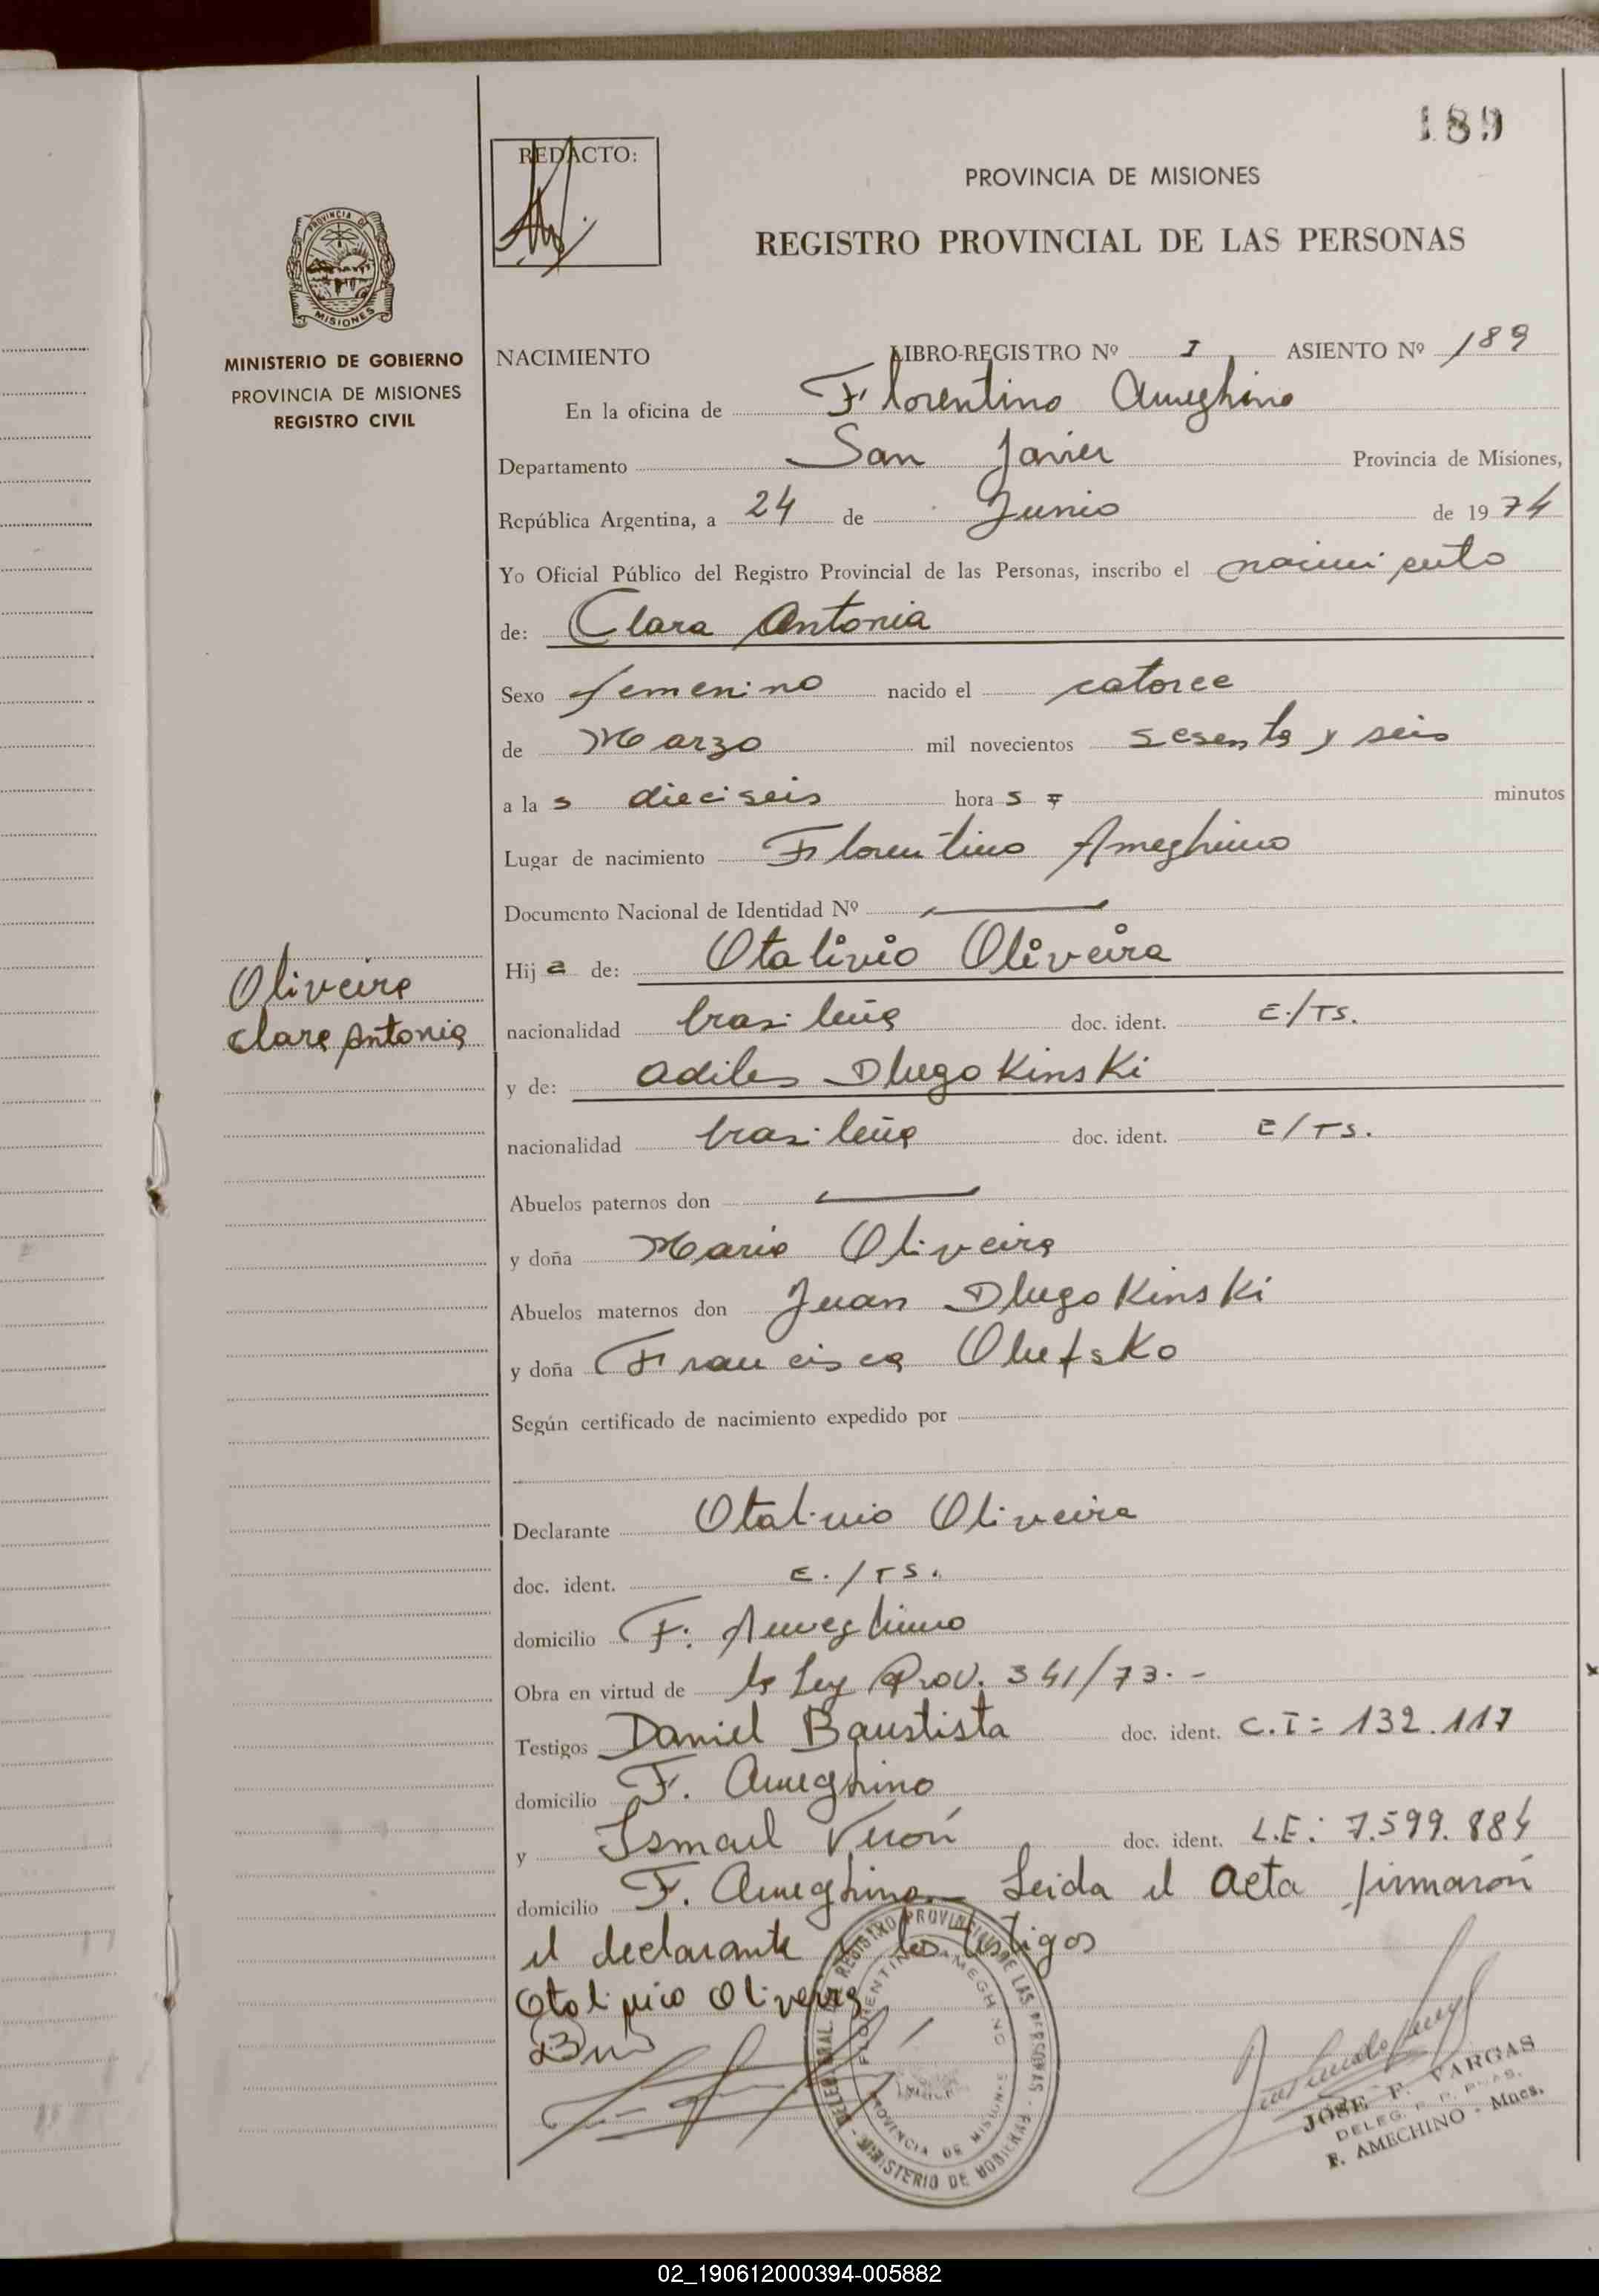 189
REDACTO:
PROVINCIA DE MISIONES
REGISTRO PROVINCIAL DE LAS PERSONAS
PROVINCIA DE
MISIONES
MINISTERIO DE GOBIERNO
PROVINCIA DE MISIONES
REGISTRO CIVIL
NACIMIENTO LIBRO-REGISTRO Nº I ASIENTO Nº 189
En la oficina de Florentino Ameghino
Departamento San Javier Provincia de Misiones,
República Argentina, a 24 de Junio de 1974
Yo Oficial Público del Registro Provincial de las Personas, inscribo el nacimiento
de: Clara Antonia
Sexo femenino nacido el catorce
de Marzo mil novecientos sesenta y seis
a las dieciseis horas minutos
Lugar de nacimiento Florentino Ameghino
Documento Nacional de Identidad Nº
Hija de: Otalivio Oliveira
Oliveira
Clara Antonia
nacionalidad brasileña doc. ident. E./TS.
y de: Adiles Dlugokinski
nacionalidad brasileña doc. ident. E/TS.
Abuelos paternos don
y doña Maria Oliveira
Abuelos maternos don Juan Dlugokinski
y doña Francisca
Según certificado de nacimiento expedido por
Declarante Otalivio Oliveira
doc. ident. E./TS.
domicilio F. Ameghino
Obra en virtud de la Ley Prov. 341/73.-
Testigos Daniel Baustista doc. ident. C.I: 132.117
domicilio F. Ameghino
y Ismael Verón doc. ident. L.E: 7.599.884
domicilio F. Ameghino.- Leida el acta firmarón
el declarante y los testigos
Otalivio Oliveira
REGISTRO PROVINCIAL DE LAS PERSONAS - MINISTERIO DE GOBIERNO
FLORENTINO AMEGHINO
PROVINCIA DE MISIONES
JOSE F. VARGAS
DELEG. R. P. P/AS.
F. AMEGHINO - Mnes.
02_190612000394-005882